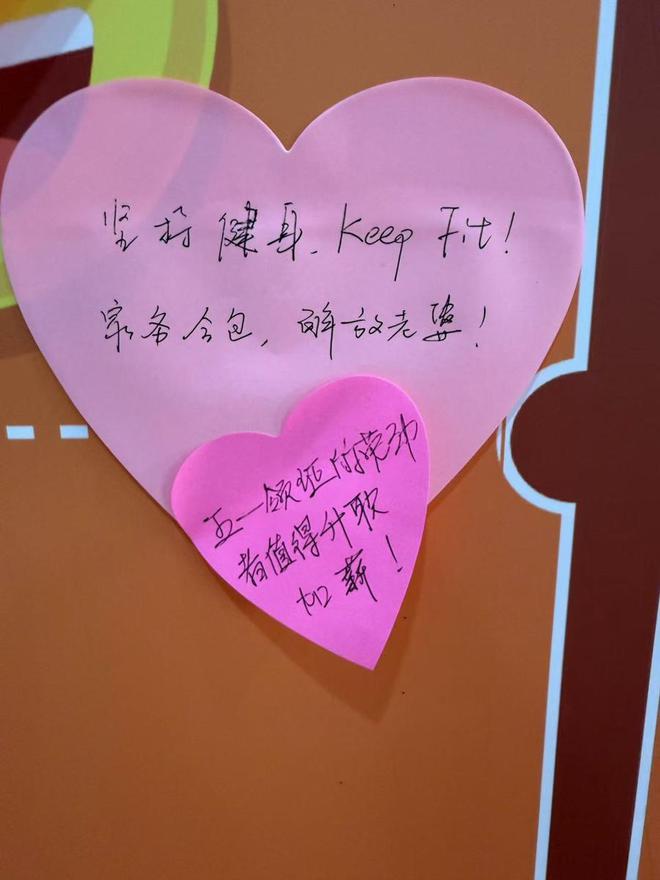 坚持健身. Keep Fit!
家务全包, 解放老婆!
五一领证的劳动
者值得升职
加薪!